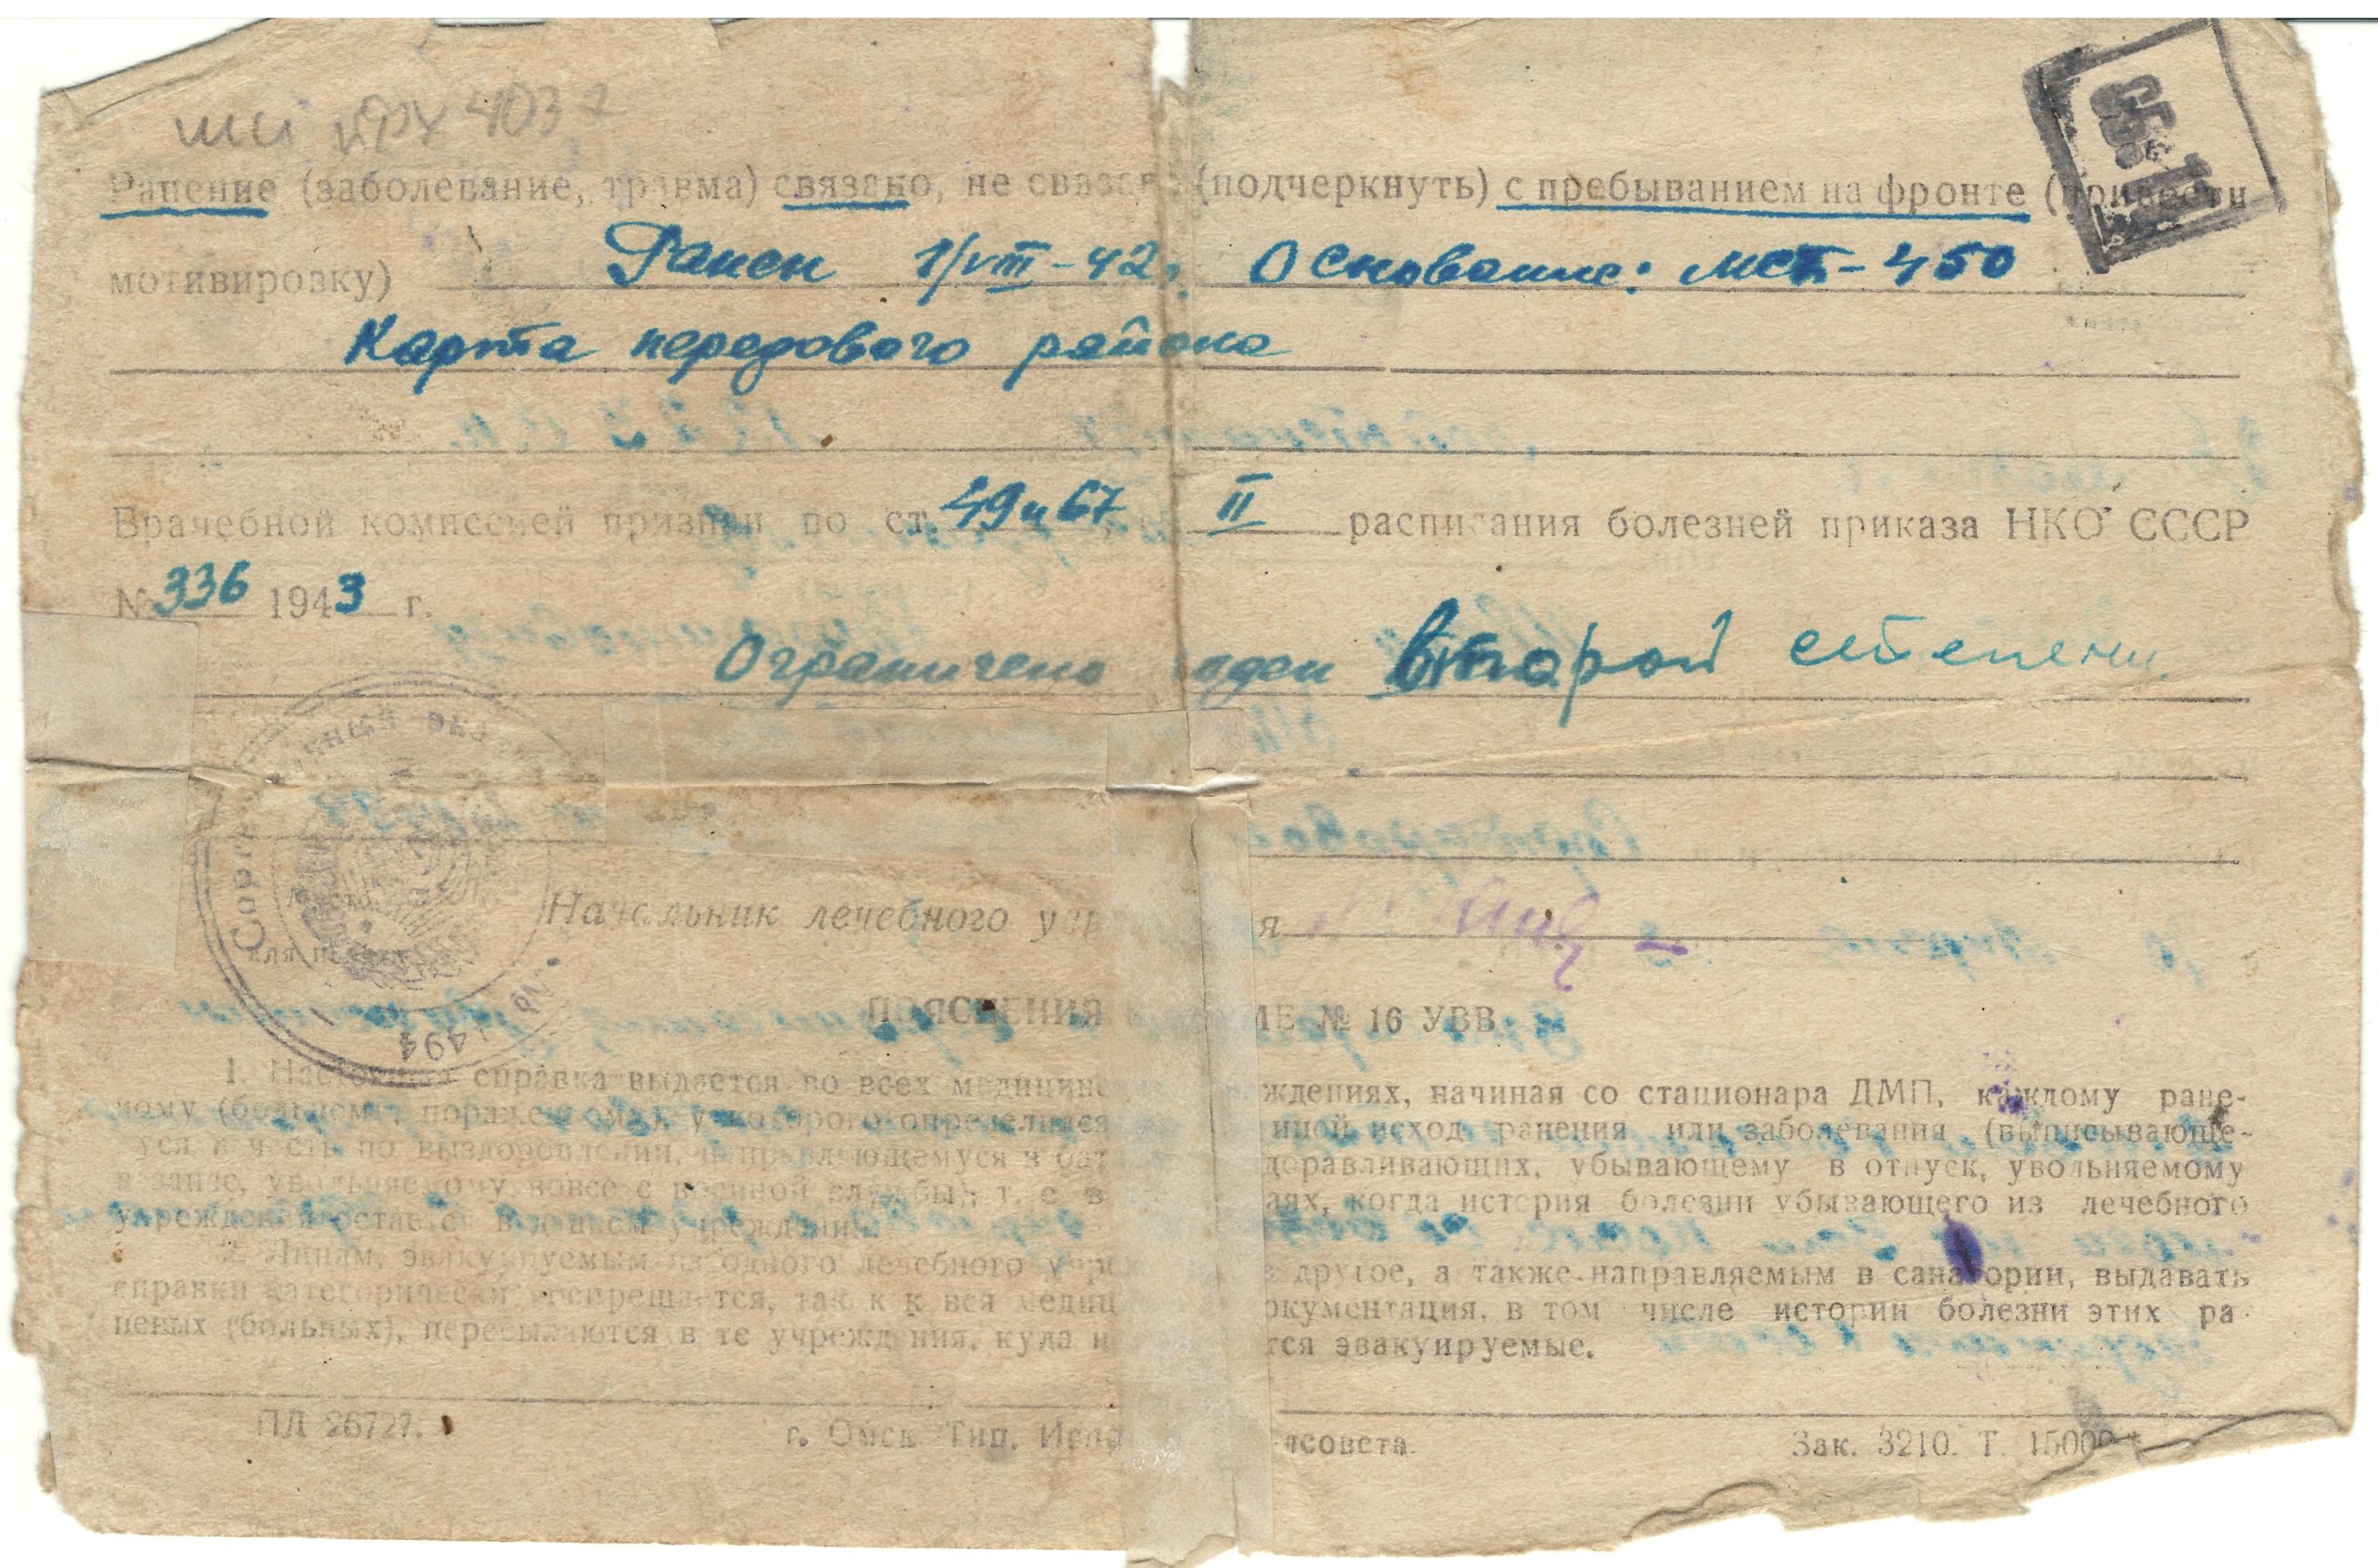 КРХ 403
Ранение (заболевание, травма) связано, не связано (подчеркнуть) с пребыванием на фронте (привести
мотивировку) Ранен 1/VIII-42. Основание: мст-450
Карта передового района
Врачебной комиссией признан по ст. 49 и 67 II расписания болезней приказа НКО СССР
№ 336 1943 г.
Ограничено годен второй степени
Начальник лечебного я
ПОЯСНЕНИЯ МЕ № 16 УВВ
1. Настоящая справка выдается во всех медицинс ждениях, начиная со стационара ДМП, каждому ране-
ному (больному, пораженному), у которого определился иной исход ранения или заболевания (выписывающе-
уся в часть по выздоровлении, направляющемуся в бат доравливающих, убывающему в отпуск, увольняемому
в запас, увольняемому вовсе с военной службы), т. е. в аях, когда история болезни убывающего из лечебного
учреждения остается в данном учреждении.
2. Лицам, эвакуируемым из одного лечебного учре другое, а также направляемым в санатории, выдавать
справки категорически воспрещается, так как вся медиц окументация, в том числе истории болезни этих ра-
неных (больных), пересылаются в те учреждения, куда н тся эвакуируемые.
ПЛ 26727. г. Омск Тип. Испо лсовета. Зак. 3210. Т. 15000
№ 1494